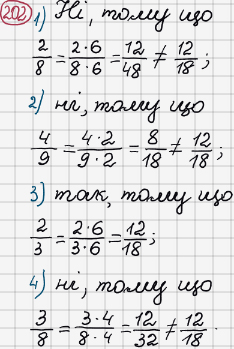 202 1) Ні, тому що
2/8 = 2·6/8·6 = 12/48 ≠ 12/18;
2) ні, тому що
4/9 = 4·2/9·2 = 8/18 ≠ 12/18;
3) так, тому що
2/3 = 2·6/3·6 = 12/18;
4) ні, тому що
3/8 = 3·4/8·4 = 12/32 ≠ 12/18.